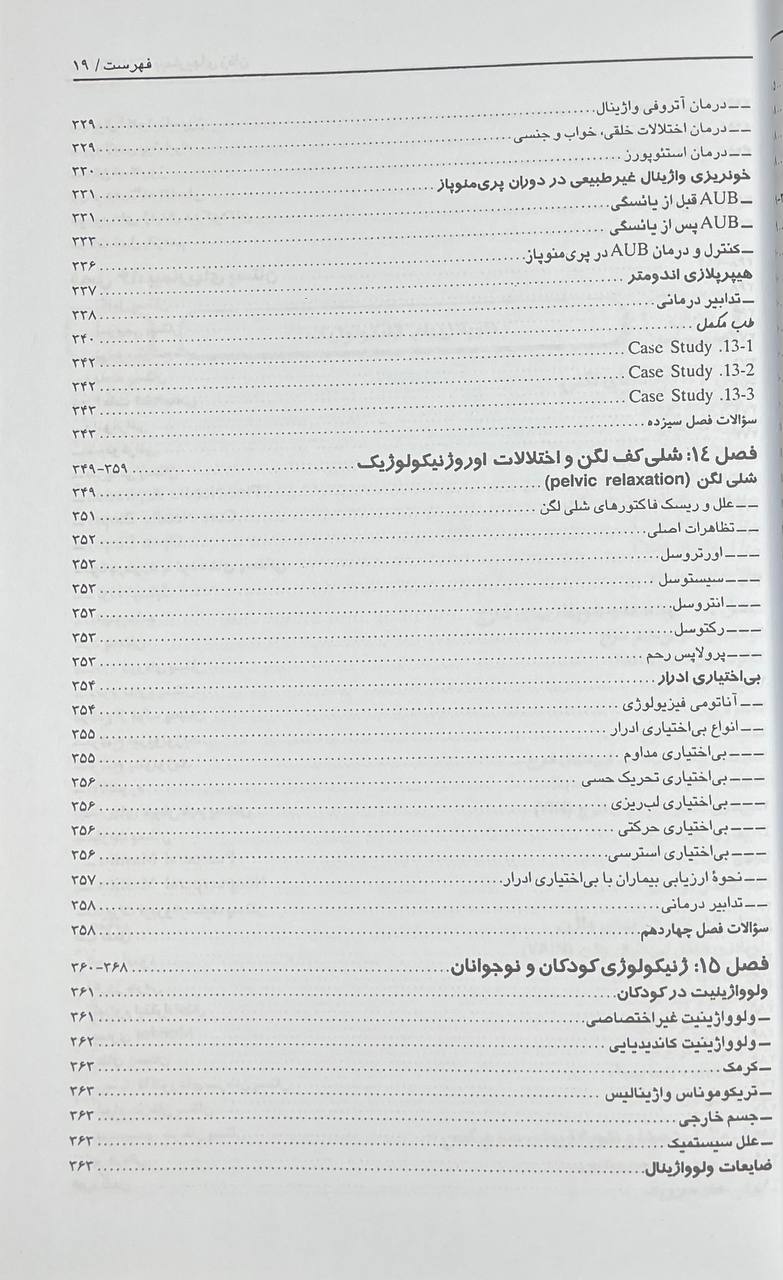 فهرست / ۱۹
ــ درمان آتروفی واژینال ۳۲۹
ــ درمان اختلالات خلقی، خواب و جنسی ۳۲۹
ــ درمان استئوپورز ۳۳۰
خونریزی واژینال غیرطبیعی در دوران پری‌منوپاز ۳۳۱
ـ AUB قبل از یائسگی ۳۳۱
ـ AUB پس از یائسگی ۳۳۳
ـ کنترل و درمان AUB در پری‌منوپاز ۳۳۶
هیپرپلازی اندومتر ۳۳۷
ـ تدابیر درمانی ۳۳۸
طب مکمل ۳۴۰
Case Study .13-1 ۳۴۲
Case Study .13-2 ۳۴۲
Case Study .13-3 ۳۴۳
سؤالات فصل سیزده ۳۴۳
فصل ۱۴: شلی کف لگن و اختلالات اوروژنیکولوژیک ۳۵۹-۳۴۹
شلی لگن (pelvic relaxation) ۳۴۹
ــ علل و ریسک فاکتورهای شلی لگن ۳۵۱
ــ تظاهرات اصلی ۳۵۲
ـــ اورتروسل ۳۵۳
ـــ سیستوسل ۳۵۳
ـــ انتروسل ۳۵۳
ـــ رکتوسل ۳۵۳
ـــ پرولاپس رحم ۳۵۳
بی‌اختیاری ادرار ۳۵۴
ــ آناتومی فیزیولوژی ۳۵۴
ــ انواع بی‌اختیاری ادرار ۳۵۵
ـــ بی‌اختیاری مداوم ۳۵۵
ـــ بی‌اختیاری تحریک حسی ۳۵۶
ـــ بی‌اختیاری لب‌ریزی ۳۵۶
ـــ بی‌اختیاری حرکتی ۳۵۶
ـــ بی‌اختیاری استرسی ۳۵۶
ــ نحوهٔ ارزیابی بیماران با بی‌اختیاری ادرار ۳۵۷
ــ تدابیر درمانی ۳۵۸
سؤالات فصل چهاردهم ۳۵۸
فصل ۱۵: ژنیکولوژی کودکان و نوجوانان ۳۶۸-۳۶۰
ولوواژینیت در کودکان ۳۶۱
ـ ولوواژینیت غیراختصاصی ۳۶۱
ـ ولوواژینیت کاندیدیایی ۳۶۲
ـ کرمک ۳۶۳
ـ تریکوموناس واژینالیس ۳۶۳
ـ جسم خارجی ۳۶۳
ـ علل سیستمیک ۳۶۳
ضایعات ولوواژینال ۳۶۳